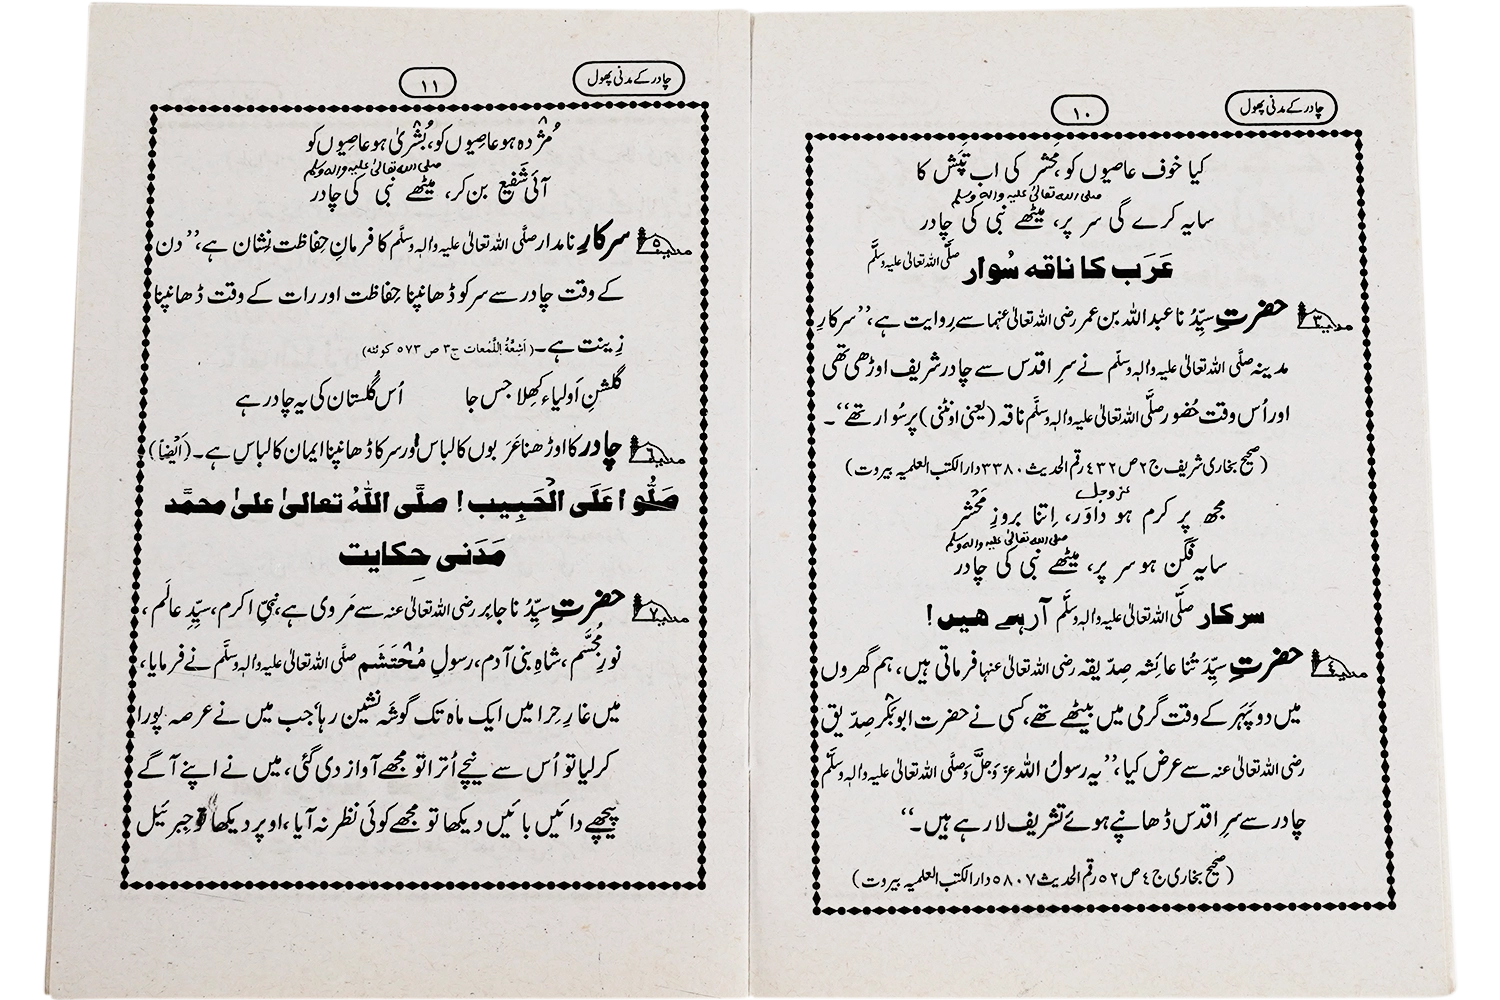 چادر کے مدنی پھول
١٠
کیا خوف عاصیوں کو، مَحشر کی اب تَپَش کا
صلی اللہ تعالیٰ علیہ والہٖ وسلم
سایہ کرے گی سر پر، میٹھے نبی کی چادر
عَرَب کا ناقہ سُوار صلَّی اللہ تعالیٰ علیہ وسلَّم
مدینہ ٣ حضرتِ سیِّدُنا عبداللہ بن عمر رضی اللہ تعالیٰ عنہما سے رِوایت ہے، ’’سرکارِ
مدینہ صلَّی اللہ تعالیٰ علیہ والہٖ وسلّم نے سرِ اقدس سے چادر شریف اوڑھی تھی
اور اُس وقت حُضور صلَّی اللہ تعالیٰ علیہ والہٖ وسلَّم ناقہ (یعنی اونٹنی) پر سُوار تھے‘‘۔
(صحیح بخاری شریف ج٢ ص ٤٣٢ رقم الحدیث ٣٣٨٠ دارالکتب العلمیہ بیروت)
عزوجل
مجھ پر کرم ہو داوَر، اِتنا بروزِ مَحْشر
صلی اللہ تعالیٰ علیہ والہٖ وسلم
سایہ فَگَن ہو سر پر، میٹھے نبی کی چادر
سرکار صلَّی اللہ تعالیٰ علیہ والہٖ وسلَّم آرہے ہیں!
مدینہ ٤ حضرتِ سیِّدَتُنا عائِشہ صِدّیقہ رضی اللہ تعالیٰ عنہا فرماتی ہیں، ہم گھروں
میں دوپَہَر کے وقت گرمی میں بیٹھے تھے، کسی نے حضرت ابوبَکْر صِدّیق
رضی اللہ تعالیٰ عنہ سے عرض کیا، ’’یہ رسولُ اللہ عزّوَجَلَّ وَصلَّی اللہ تعالیٰ علیہ والہٖ وسلَّم
چادر سے سرِ اقدس ڈھانپے ہوئے تشریف لارہے ہیں۔‘‘
(صحیح بخاری ج٤ ص ٥٢ رقم الحدیث ٥٨٠٧ دارالکتب العلمیہ بیروت)
چادر کے مدنی پھول
١١
مُژدہ ہو عاصِیوں کو، بُشریٰ ہو عاصِیوں کو
صلی اللہ تعالیٰ علیہ والہٖ وسلم
آئی شَفیع بن کر، میٹھے نبی کی چادر
مدینہ ٥ سرکارِ نامدار صلَّی اللہ تعالیٰ علیہ والہٖ وسلَّم کا فرمانِ حِفاظت نشان ہے، ’’دن
کے وقت چادر سے سر کو ڈھانپنا حِفاظت اور رات کے وقت ڈھانپنا
زِینت ہے۔ (اَشِعَّةُ اللَّمعات ج٣ ص ٥٧٣ کوئٹہ)
گلشنِ اَولیاء کِھلا جس جا اُس گُلستان کی یہ چادر ہے
مدینہ ٦ چادر کا اوڑھنا عَرَبوں کا لباس اور سر کا ڈھانپنا ایمان کا لباس ہے۔ (اَیْضاً)
صَلُّوا عَلَی الْحَبِیب! صلَّی اللّٰهُ تعالیٰ علیٰ محمَّد
مَدَنی حِکایت
مدینہ ٧ حضرتِ سیِّدُنا جابِر رضی اللہ تعالیٰ عنہ سے مَروی ہے، نبیِّ اکرم، سیِّدِ عالَم،
نورِ مُجَسَّم، شاہِ بنی آدم، رسولِ مُحْتَشَم صلَّی اللہ تعالیٰ علیہ والہٖ وسلَّم نے فرمایا،
میں غارِ حِرا میں ایک ماہ تک گوشہ نشین رہا جب میں نے عرصہ پورا
کرلیا تو اُس سے نیچے اُترا تو مجھے آواز دی گئی، میں نے اپنے آگے
پیچھے دائیں بائیں دیکھا تو مجھے کوئی نظر نہ آیا، اوپر دیکھا تو جِبرئیل